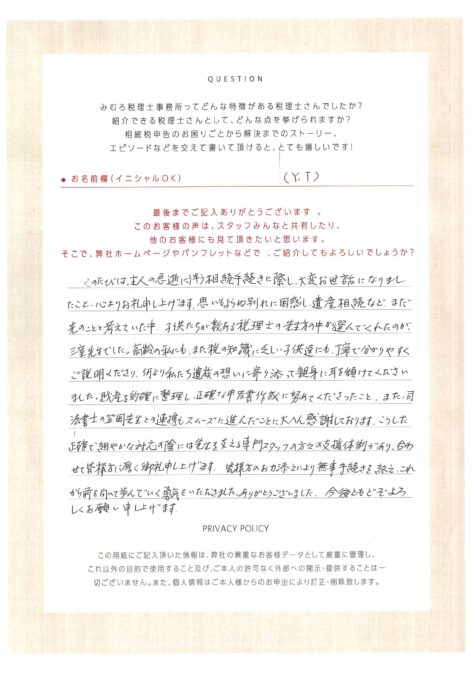 QUESTION
みむろ税理士事務所ってどんな特徴がある税理士さんでしたか？
紹介できる税理士さんとして、どんな点を挙げられますか？
相続税申告のお困りごとから解決までのストーリー、
エピソードなどを交えて書いて頂けると、とても嬉しいです！
● お名前欄（イニシャルOK） （Y.T）
最後までご記入ありがとうございます 。
このお客様の声は、スタッフみんなと共有したり、
他のお客様にも見て頂きたいと思います。
そこで、弊社ホームページやパンフレットなどで 、ご紹介してもよろしいでしょうか？
このたびは、主人の急逝に伴う相続手続きに際し、大変お世話になりまし
たこと、心よりお礼申し上げます。思いもよらぬ別れに困惑し、遺産相続など、まだ
先のことと考えていた中、子供たちが数ある税理士の先生方の中から選んでくれたのが
三室先生でした。高齢の私にも、また税の知識に乏しい子供達にも、丁寧で分かりやすく
ご説明くださり、何より私たち遺族の想いに寄り添って親身に耳を傾けてください
ました。財産を的確に整理し、正確な申告書作成に努めてくださったこと、また、司
法書士の 先生との連携もスムーズに進んだことに大へん感謝しております。こうした
正確で細やかな対応の陰には先生を支える専門スタッフの方々の支援体制があり、合わ
せて皆様方に厚く御礼申し上げます。皆様方のお力添えにより無事手続きを終え、これ
から前を向いて歩んでいく勇気をいただきました。ありがとうございました。今後ともどうぞよろ
しくお願い申し上げます。
PRIVACY POLICY
この用紙にご記入頂いた情報は、弊社の貴重なお客様データとして厳重に管理し、
これ以外の目的で使用すること及び、ご本人の許可なく外部への開示・提供することは一
切ございません。また、個人情報はご本人様からのお申出により訂正・削除致します。